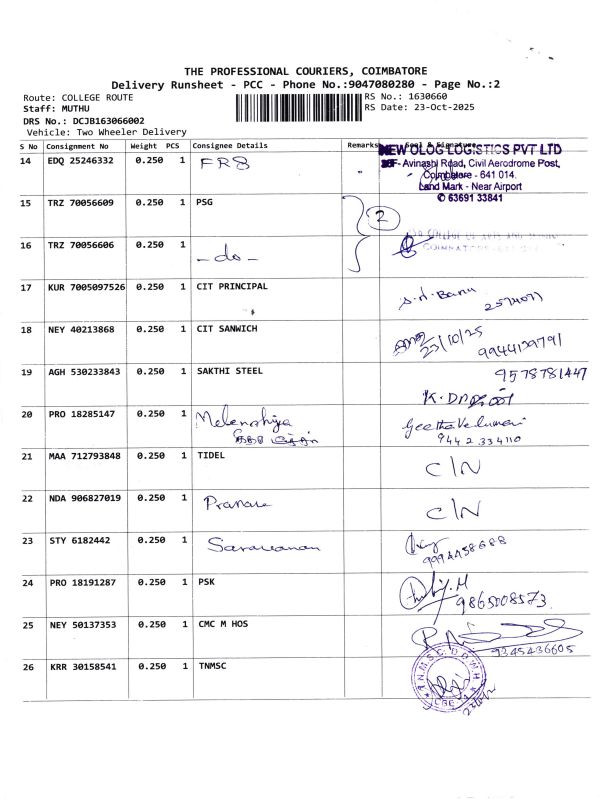 THE PROFESSIONAL COURIERS, COIMBATORE
Delivery Runsheet - PCC - Phone No.:9047080280 - Page No.:2
Route: COLLEGE ROUTE
RS No.: 1630660
Staff: MUTHU
RS Date: 23-Oct-2025
DRS No.: DCJB163066002
Vehicle: Two Wheeler Delivery
S No Consignment No Weight PCS Consignee Details Remarks Seal & Signature
NEW OLOG LOGISTICS PVT LTD
14 EDQ 25246332 0.250 1 FRS
Avinashi Road, Civil Aerodrome Post,
Coimbatore - 641 014.
Land Mark - Near Airport
✆ 63691 33841
15 TRZ 70056609 0.250 1 PSG
2
16 TRZ 70056606 0.250 1 - do -
17 KUR 7005097526 0.250 1 CIT PRINCIPAL
18 NEY 40213868 0.250 1 CIT SANWICH
23/10/25
9944139791
19 AGH 530233843 0.250 1 SAKTHI STEEL 9578781447
20 PRO 18285147 0.250 1
9442334110
21 MAA 712793848 0.250 1 TIDEL C/N
22 NDA 906827019 0.250 1 C/N
23 STY 6182442 0.250 1 Saravanan
24 PRO 18191287 0.250 1 PSK
9865008573
25 NEY 50137353 0.250 1 CMC M HOS
9245436605
26 KRR 30158541 0.250 1 TNMSC